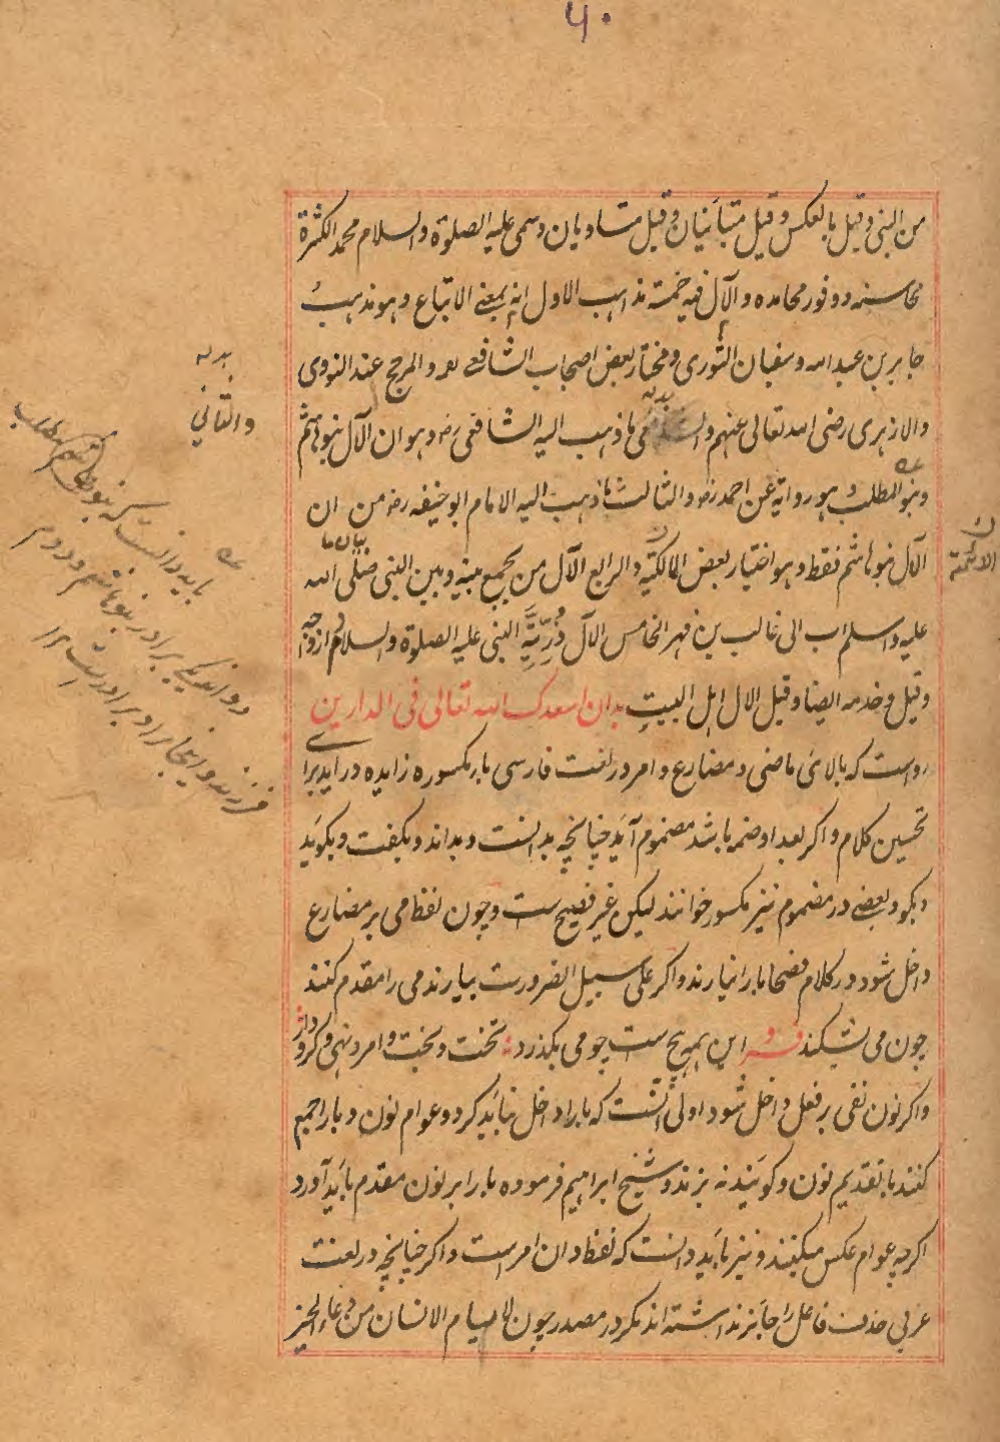 من النبی وقیل بالعکس وقیل متبائنیان وقیل متساویان وسمی علیه الصلوة والسلام محمدا لکثرة
محاسنه ووفور محامده والآل فیه خمسة مذاهب الاول انه بمعنی الاتباع وهو مذهب
جابر بن عبد الله وسفیان الثوری ومختار بعض اصحاب الشافعی والمرجح عند النووی
والازهری رضی الله تعالی عنهم ما ذهب الیه الشافعی رضه وهو ان الآل بنو هاشم
وبنو المطلب وهو روایة عن احمد رضه والثالث ما ذهب الیه الامام ابو حنیفه رضه من ان
الآل بنو هاشم فقط وهو اختیار بعض المالکیة والرابع الآل من یجمع بینه وبین النبی صلی الله
علیه وسلم اب الی غالب بن فهر الخامس الآل ذُرِّیَّة النبی علیه الصلوة والسلام وازواجه
وقیل وخدمه ایضا وقیل الال اهل البیت بدان اسعدک الله تعالی فی الدارین
رواست که بالای ماضی ومضارع وامر در لغت فارسی باء مکسوره زایده در آید برای
تحسین کلام واکر بعد او ضمه باشد مضموم آید چنانچه بدانست وبداند وبکفت وبکوید
وبکو وبعضی در مضموم نیز مکسور خوانند لیکن غیر فصیح ست وچون لفظ می بر مضارع
داخل شود در کلام فصحا با را نیارند واکر علی سبیل الضرورت بیارند می را مقدم کنند
چون می بشکند فرد این همه هیچ ست چو می بکذرد تخت وبخت وامر ونهی وکیر ودار
واکر نون نفی بر فعل داخل شود اولی آنست که با را داخل نباید کرد وعوام نون وبا را جمع
کنند با تقدیم نون وکویند نه بزند وشیخ ابراهیم فرموده با را بر نون مقدم باید آورد
اکرچه عوام عکس میکنند ونیز باید دانست که لفظ دان امر است واکر چنانچه در لغت
عربی حذف فاعل را جایز نداشته اند مکر در مصدر چون لا یسام الانسان من دعاء الخیر
والثانی
باید دانست که بنو هاشم بنو مطلب